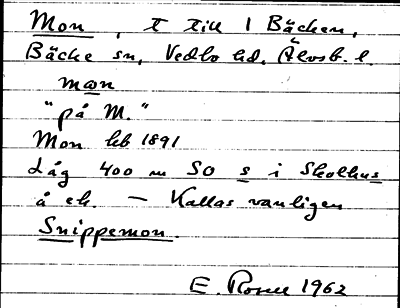 Mon, t till 1 Bäcken,
Bäcke sn, Vedbo hd, Älvsb. l.
mɷn
"på M."
Mon hb 1891
Låg 400 m SO s i Skolhus
å ek. — Kallas vanligen
Snippemon.
E. Rosell 1962